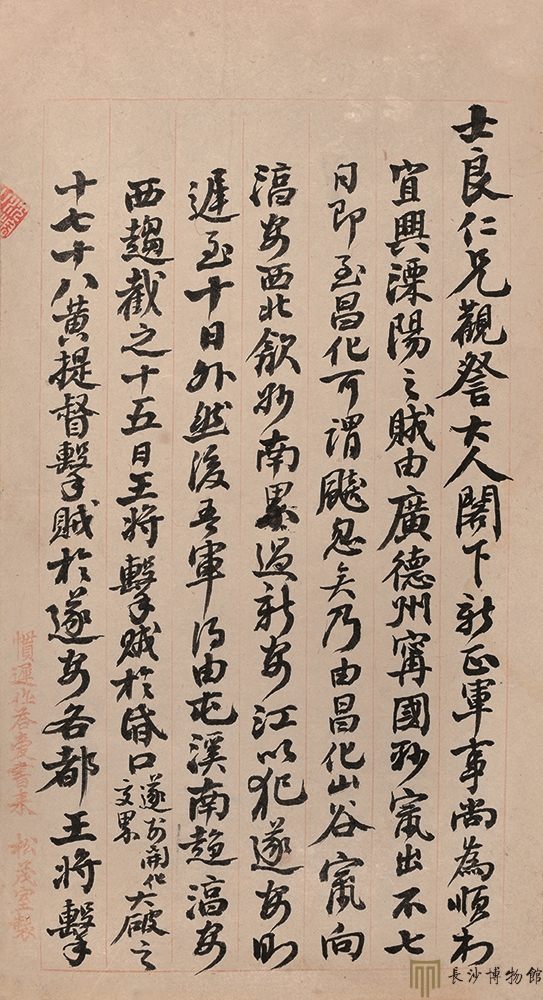 士良仁兄觀詧大人閣下新正軍事尚為順利
宜興溧陽之賊由廣德州寧國縣竄出不七
日即至昌化可謂飇忽矣乃由昌化山谷竄向
淳安西北歙縣南界過新安江以犯遂安則
遲至十日外然後吾軍得由屯溪南趨淳安
西趨截之十五日王將擊賊於昏口遂安開化交界大破之
十七十八黃提督擊賊於遂安各都王將擊
慣遲作答愛書來 松茂室製
長沙博物館